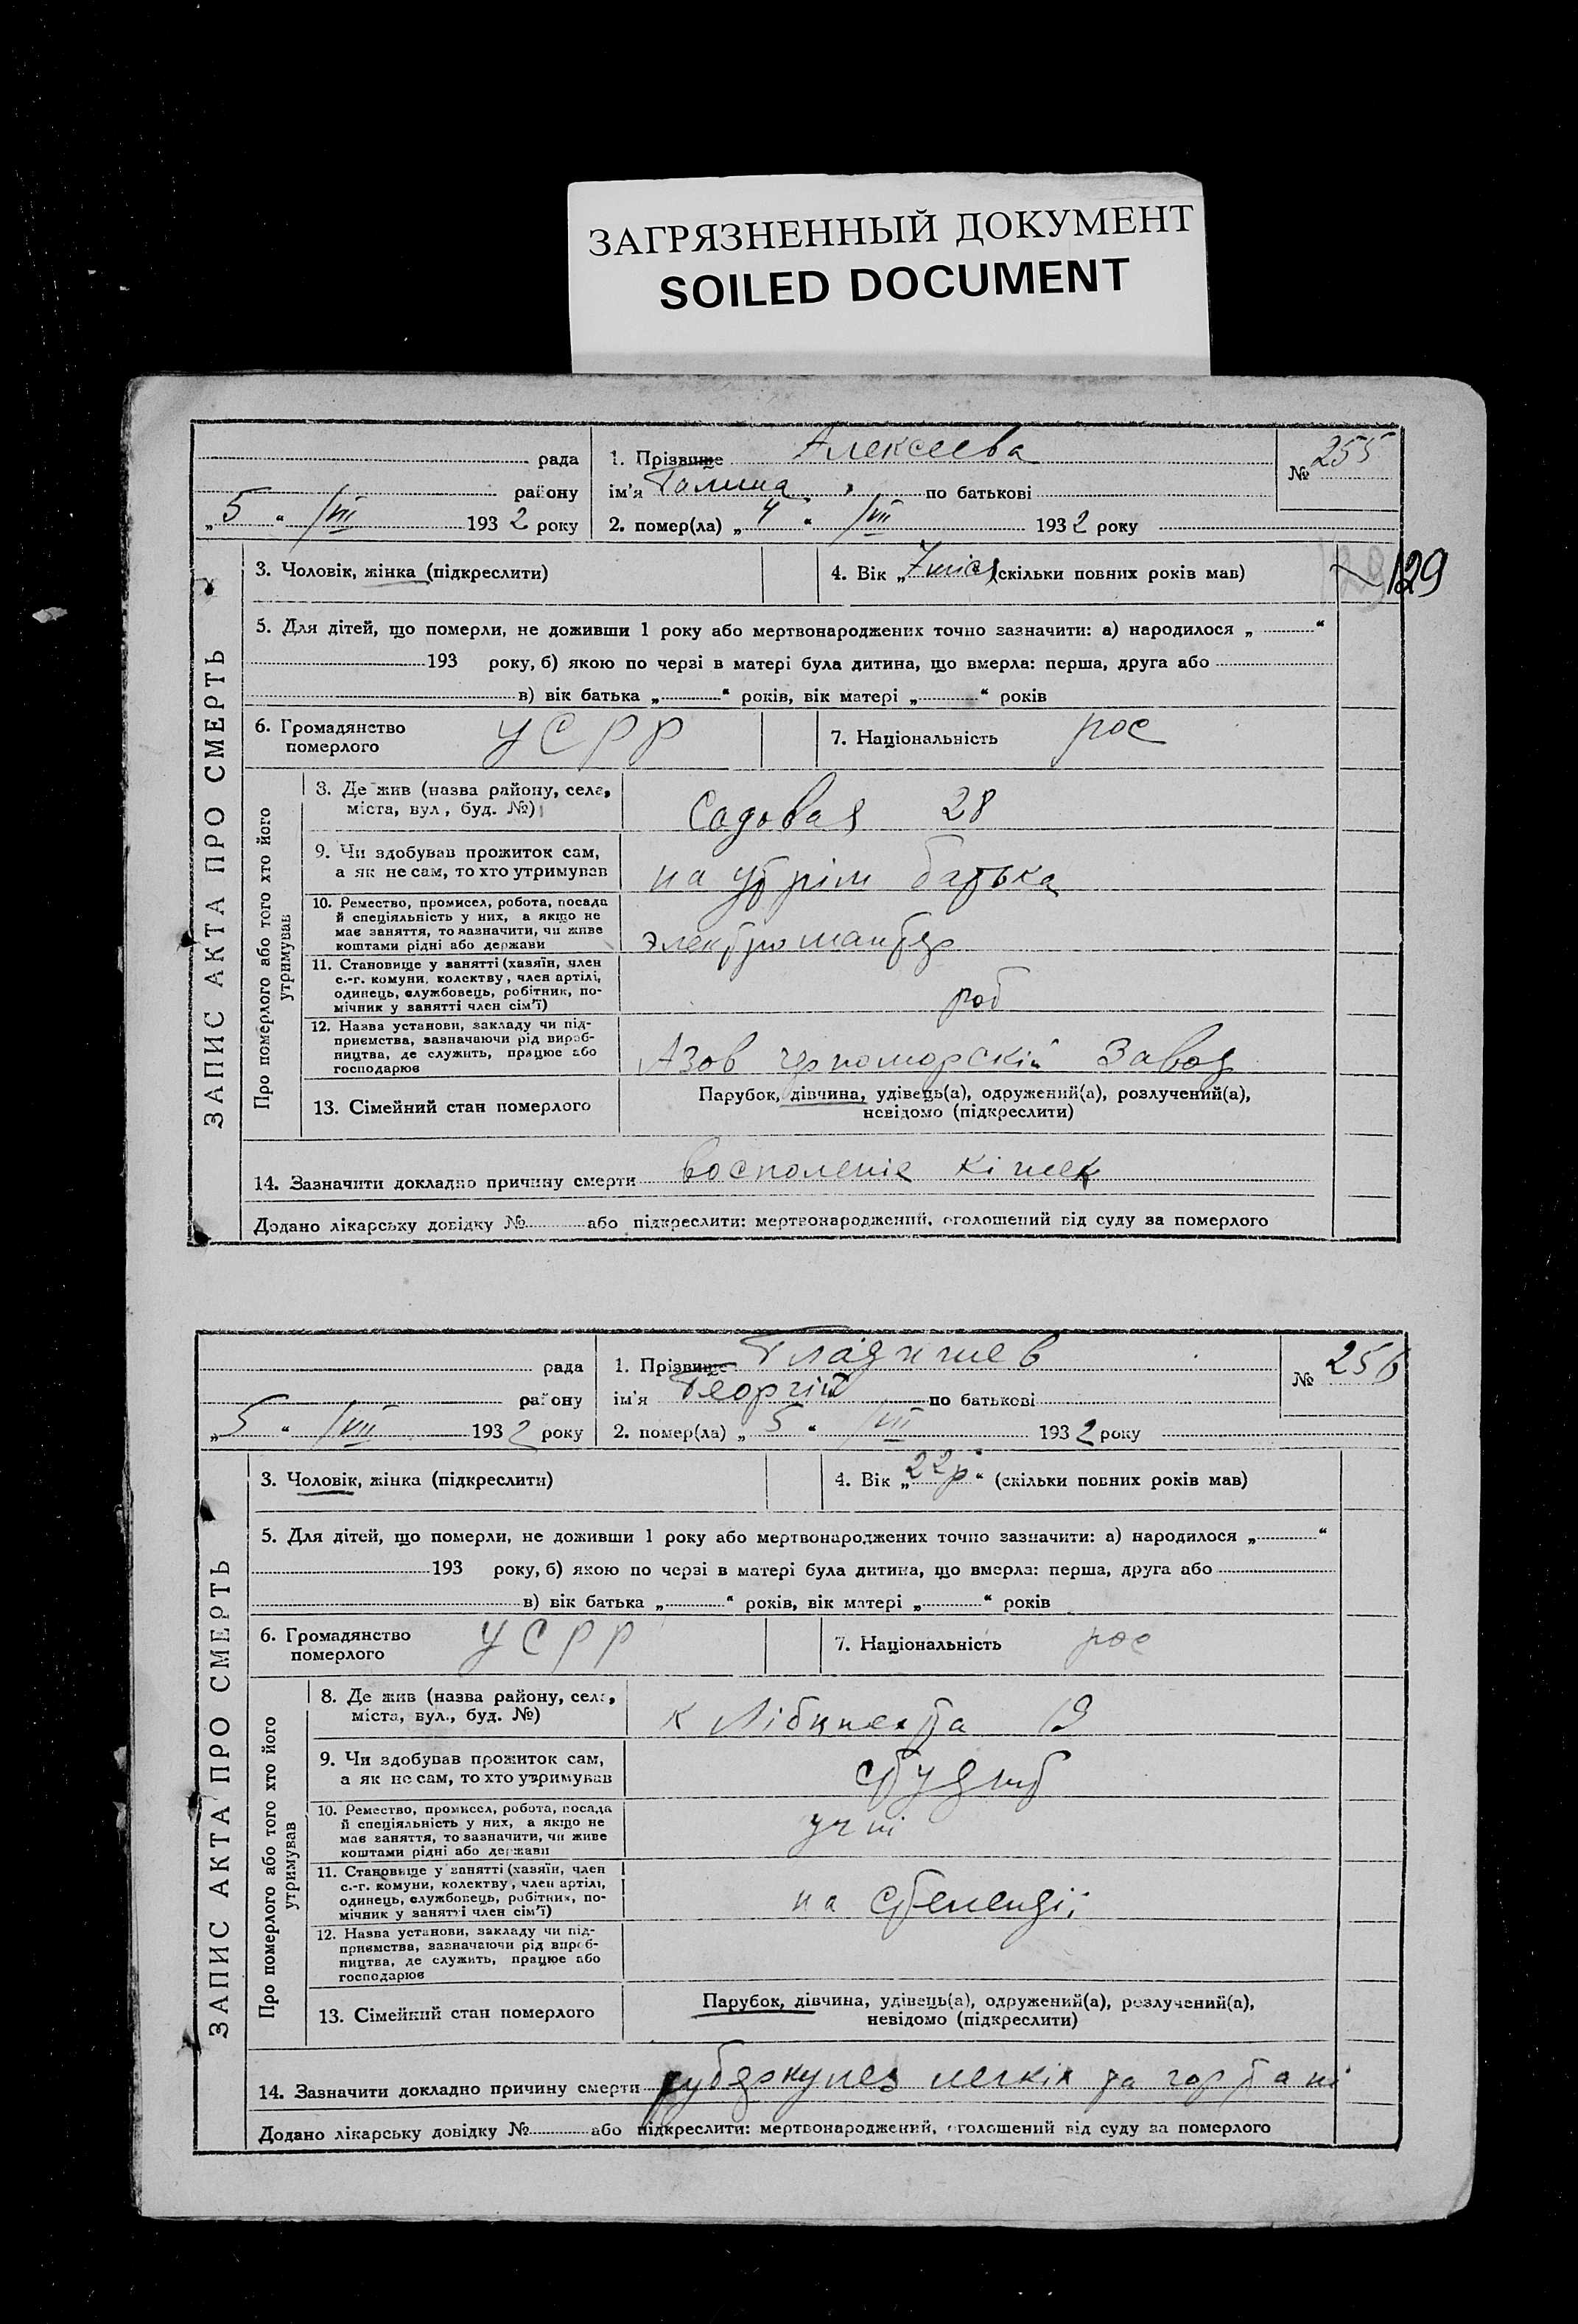 ЗАГРЯЗНЕННЫЙ ДОКУМЕНТ
SOILED DOCUMENT
рада
району
„5“ VIII 1932 року
1. Прізвище Алексеева
ім'я Галина по батькові
2. помер(ла) „4“ VIII 1932 року
№ 255
129
ЗАПИС АКТА ПРО СМЕРТЬ
3. Чоловік, жінка (підкреслити)
4. Вік „7 міс“ (скільки повних років мав)
5. Для дітей, що померли, не доживши 1 року або мертвонароджених точно зазначити: а) народилося „ “
193 року, б) якою по черзі в матері була дитина, що вмерла: перша, друга або
в) вік батька „ “ років, вік матері „ “ років
6. Громадянство
померлого
УСРР
7. Національність рос
Про померлого або того хто його
утримував
8. Де жив (назва району, села,
міста, вул., буд. №)
Садовая 28
9. Чи здобував прожиток сам,
а як не сам, то хто утримував
на утрім батька
10. Ремество, промисел, робота, посада
й спеціяльність у них, а якщо не
має заняття, то зазначити, чи живе
коштами рідні або держави
электромантер
11. Становище у занятті (хазяїн, член
с.-г. комуни, колектву, член артілі,
одинець, службовець, робітник, по-
мічник у занятті член сім'ї)
роб
12. Назва установи, закладу чи під-
приємства, зазначаючи рід вироб-
ництва, де служить, працює або
господарює
Азов черноморскій Завод
13. Сімейний стан померлого
Парубок, дівчина, удівець(а), одружений(а), розлучений(а),
невідомо (підкреслити)
14. Зазначити докладно причину смерти восполеніе кішек
Додано лікарську довідку № або підкреслити: мертвонароджений, оголошений від суду за померлого
рада
району
„5“ VIII 1932 року
1. Прізвище Гладишев
ім'я Георгій по батькові
2. помер(ла) „5“ VIII 1932 року
№ 256
ЗАПИС АКТА ПРО СМЕРТЬ
3. Чоловік, жінка (підкреслити)
4. Вік „22р“ (скільки повних років мав)
5. Для дітей, що померли, не доживши 1 року або мертвонароджених точно зазначити: а) народилося „ “
193 року, б) якою по черзі в матері була дитина, що вмерла: перша, друга або
в) вік батька „ “ років, вік матері „ “ років
6. Громадянство
померлого
УСРР
7. Національність рос
Про померлого або того хто його
утримував
8. Де жив (назва району, села,
міста, вул., буд. №)
К Лібкнехта
9. Чи здобував прожиток сам,
а як не сам, то хто утримував
студент
10. Ремество, промисел, робота, посада
й спеціяльність у них, а якщо не
має заняття, то зазначити, чи живе
коштами рідні або держави
11. Становище у занятті (хазяїн, член
с.-г. комуни, колектву, член артілі,
одинець, службовець, робітник, по-
мічник у занятті член сім'ї)
на степендіі
12. Назва установи, закладу чи під-
приємства, зазначаючи рід вироб-
ництва, де служить, працює або
господарює
13. Сімейний стан померлого
Парубок, дівчина, удівець(а), одружений(а), розлучений(а),
невідомо (підкреслити)
14. Зазначити докладно причину смерти туберкулез легкіх та гортані
Додано лікарську довідку № або підкреслити: мертвонароджений, оголошений від суду за померлого